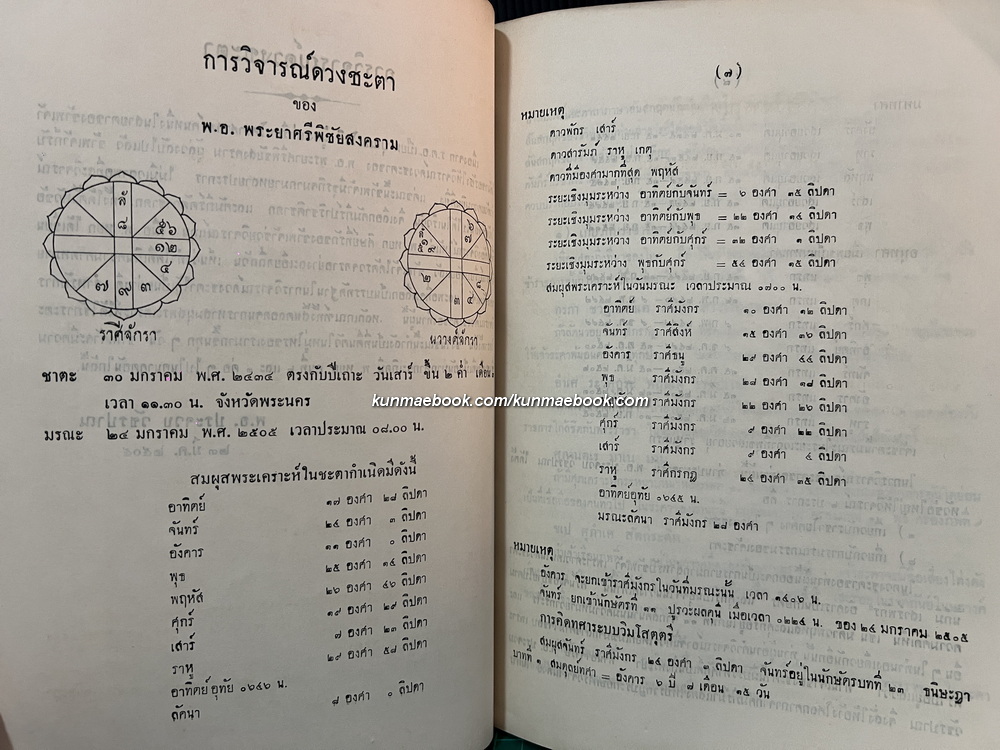 การวิจารณ์ดวงชะตา
ของ
พ.อ. พระยาศรีพิชัยสงคราม
ลั
๘
๕ ๖
๑ ๒
๔
๓
๙
๗
ราศีจักรา
นวางศ์จักรา
ชาตะ ๓๐ มกราคม พ.ศ. ๒๔๓๔ ตรงกับปีเถาะ วันเสาร์ ขึ้น ๒ ค่ำ เดือน
เวลา ๑๑.๓๐ น. จังหวัดพระนคร
มรณะ ๒๔ มกราคม พ.ศ. ๒๕๐๕ เวลาประมาณ ๐๘.๐๐ น.
kunmaebook.com/kunmaebook.com
สมผุสพระเคราะห์ในชะตากำเนิดมีดังนี้
อาทิตย์ ๑๗ องศา ๒๘ ลิปดา
จันทร์ ๒๔ องศา ๓ ลิปดา
อังคาร ๑๑ องศา ๐ ลิปดา
พุธ ๒๕ องศา ๑๔ ลิปดา
พฤหัส ๒๐ องศา ๔๖ ลิปดา
ศุกร์ ๑๙ องศา ๒๙ ลิปดา
เสาร์ ๗ องศา ๒๓ ลิปดา
ราหู ๒๙ องศา ๕๘ ลิปดา
อาทิตย์อุทัย ๐๖๔๖ น.
ลัคนา ๘ องศา ๐ ลิปดา
(๗)
หมายเหตุ
ดาวพักร เสาร์
ดาวสารัมภ์ ราหู เกตุ
ดาวที่มีองศามากที่สุด พฤหัส
ระยะเชิงมุมระหว่าง อาทิตย์กับจันทร์ = ๖ องศา ๓๕ ลิปดา
ระยะเชิงมุมระหว่าง อาทิตย์กับพุธ = ๒๒ องศา ๑๔ ลิปดา
ระยะเชิงมุมระหว่าง อาทิตย์กับศุกร์ = ๓๒ องศา ๑ ลิปดา
ระยะเชิงมุมระหว่าง พุธกับศุกร์ = ๕๔ องศา ๑๕ ลิปดา
สมผุสพระเคราะห์ในวันมรณะ เวลาประมาณ ๐๗๐๐ น.
อาทิตย์ ราศีมังกร ๑๐ องศา ๑๒ ลิปดา
จันทร์ ราศีสิงห์ ๑๕ องศา ๓๖ ลิปดา
อังคาร ราศีธนู ๒๙ องศา ๔๔ ลิปดา
พุธ ราศีมังกร ๒๘ องศา ๑๘ ลิปดา
๒๒ องศา ๒๖ ลิปดา
ศุกร์ ราศีมังกร ๙ องศา ๒๒ ลิปดา
เสาร์ ราศีมังกร ๙ องศา ๔ ลิปดา
ราหู ราศีกรกฎ ๒๔ องศา ๓๕ ลิปดา
อาทิตย์อุทัย ๐๖๔๕ น.
มรณะลัคนา ราศีมังกร ๒๘ องศา
หมายเหตุ
อังคาร จะยกเข้าราศีมังกรในวันที่มรณะนั้น เวลา ๑๔๐๖ น.
จันทร์ ยกเข้านักษัตรที่ ๑๑ ปุรวะผลคุนี เมื่อเวลา ๐๒๒๔ น. ของ ๒๔ มกราคม ๒๕๐๕
การคิดทศาระบบวิมโสตตุตรี
สมผุสจันทร์ ราศีมังกร ๒๔ องศา ๓ ลิปดา จันทร์อยู่ในนักษัตรบทที่ ๒๓ ธนิษะฎา
บาทที่ ๑ สมตุลย์ทศา = อังคาร ๖ ปี ๗ เดือน ๑๕ วัน